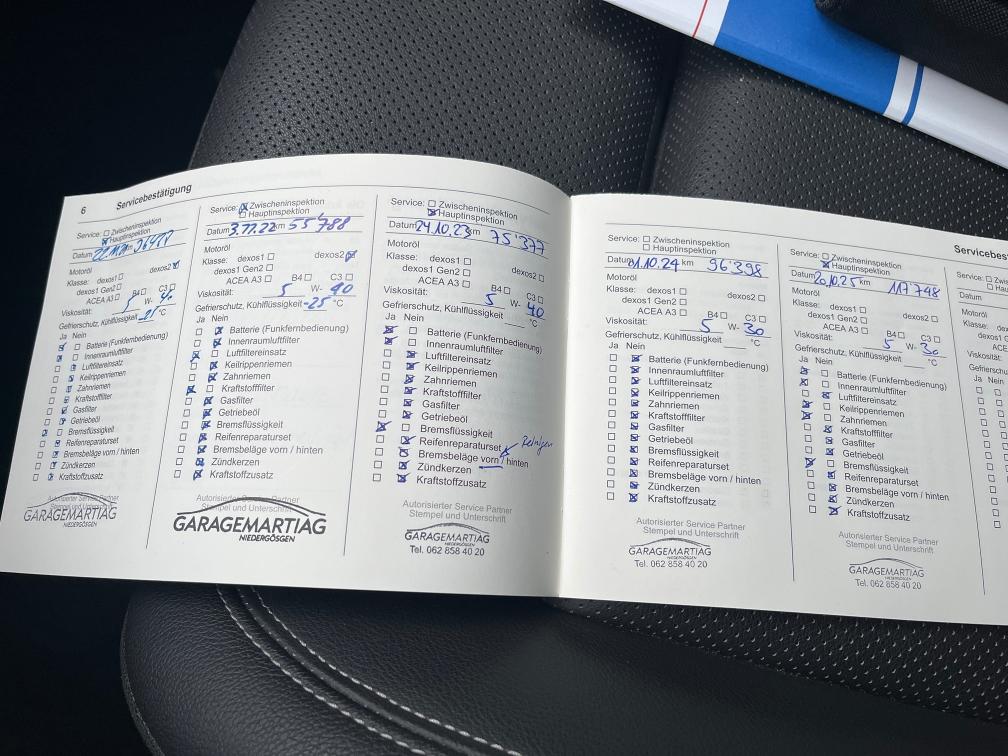 6 Servicebestätigung
Service: Zwischeninspektion
Hauptinspektion
Datum km
Motoröl
Klasse: dexos1 dexos2
dexos1 Gen2
ACEA A3 B4 C3
Viskosität: 5 W- 40
Gefrierschutz, Kühlflüssigkeit °C
Ja Nein
Batterie (Funkfernbedienung)
Innenraumluftfilter
Luftfiltereinsatz
Keilrippenriemen
Zahnriemen
Kraftstofffilter
Gasfilter
Getriebeöl
Bremsflüssigkeit
Reifenreparaturset
Bremsbeläge vorn / hinten
Zündkerzen
Kraftstoffzusatz
Autorisierter Service Partner
Stempel und Unterschrift
GARAGEMARTIAG
NIEDERGÖSGEN
Service: Zwischeninspektion
Hauptinspektion
Datum km 55'788
Motoröl
Klasse: dexos1 dexos2
dexos1 Gen2
ACEA A3 B4 C3
Viskosität: 5 W- 40
Gefrierschutz, Kühlflüssigkeit -25 °C
Ja Nein
Batterie (Funkfernbedienung)
Innenraumluftfilter
Luftfiltereinsatz
Keilrippenriemen
Zahnriemen
Kraftstofffilter
Gasfilter
Getriebeöl
Bremsflüssigkeit
Reifenreparaturset
Bremsbeläge vorn / hinten
Zündkerzen
Kraftstoffzusatz
Autorisierter Service Partner
GARAGEMARTIAG
NIEDERGÖSGEN
Service: Zwischeninspektion
Hauptinspektion
Datum 24.10.23 km 75'377
Motoröl
Klasse: dexos1 dexos2
dexos1 Gen2
ACEA A3 B4 C3
Viskosität: 5 W- 40
Gefrierschutz, Kühlflüssigkeit °C
Ja Nein
Batterie (Funkfernbedienung)
Innenraumluftfilter
Luftfiltereinsatz
Keilrippenriemen
Zahnriemen
Kraftstofffilter
Gasfilter
Getriebeöl
Bremsflüssigkeit
Reifenreparaturset Reinigen
Bremsbeläge vorn / hinten
Zündkerzen
Kraftstoffzusatz
Autorisierter Service Partner
Stempel und Unterschrift
GARAGEMARTIAG
NIEDERGÖSGEN
Tel. 062 858 40 20
Service: Zwischeninspektion
Hauptinspektion
Datum 01.10.24 km 96'398
Motoröl
Klasse: dexos1
dexos1 Gen2 dexos2
ACEA A3 B4 C3
Viskosität: 5 W- 30
Gefrierschutz, Kühlflüssigkeit °C
Ja Nein
Batterie (Funkfernbedienung)
Innenraumluftfilter
Luftfiltereinsatz
Keilrippenriemen
Zahnriemen
Kraftstofffilter
Gasfilter
Getriebeöl
Bremsflüssigkeit
Reifenreparaturset
Bremsbeläge vorn / hinten
Zündkerzen
Kraftstoffzusatz
Autorisierter Service Partner
Stempel und Unterschrift
GARAGEMARTIAG
NIEDERGÖSGEN
Tel. 062 858 40 20
Servicebes
Service: Zwischeninspektion
Hauptinspektion
Datum 20.10.25 km 117'748
Motoröl
Klasse: dexos1
dexos1 Gen2 dexos2
ACEA A3 B4 C3
Viskosität: 5 W- 30
Gefrierschutz, Kühlflüssigkeit °C
Ja Nein
Batterie (Funkfernbedienung)
Innenraumluftfilter
Luftfiltereinsatz
Keilrippenriemen
Zahnriemen
Kraftstofffilter
Gasfilter
Getriebeöl
Bremsflüssigkeit
Reifenreparaturset
Bremsbeläge vorn / hinten
Zündkerzen
Kraftstoffzusatz
Autorisierter Service Partner
Stempel und Unterschrift
GARAGEMARTIAG
NIEDERGÖSGEN
Tel. 062 858 40 20
Service: Zw
Ha
Datum
Motoröl
Klasse:
dexos1 G
ACE
Viskosität:
Gefrierschu
Ja Nein